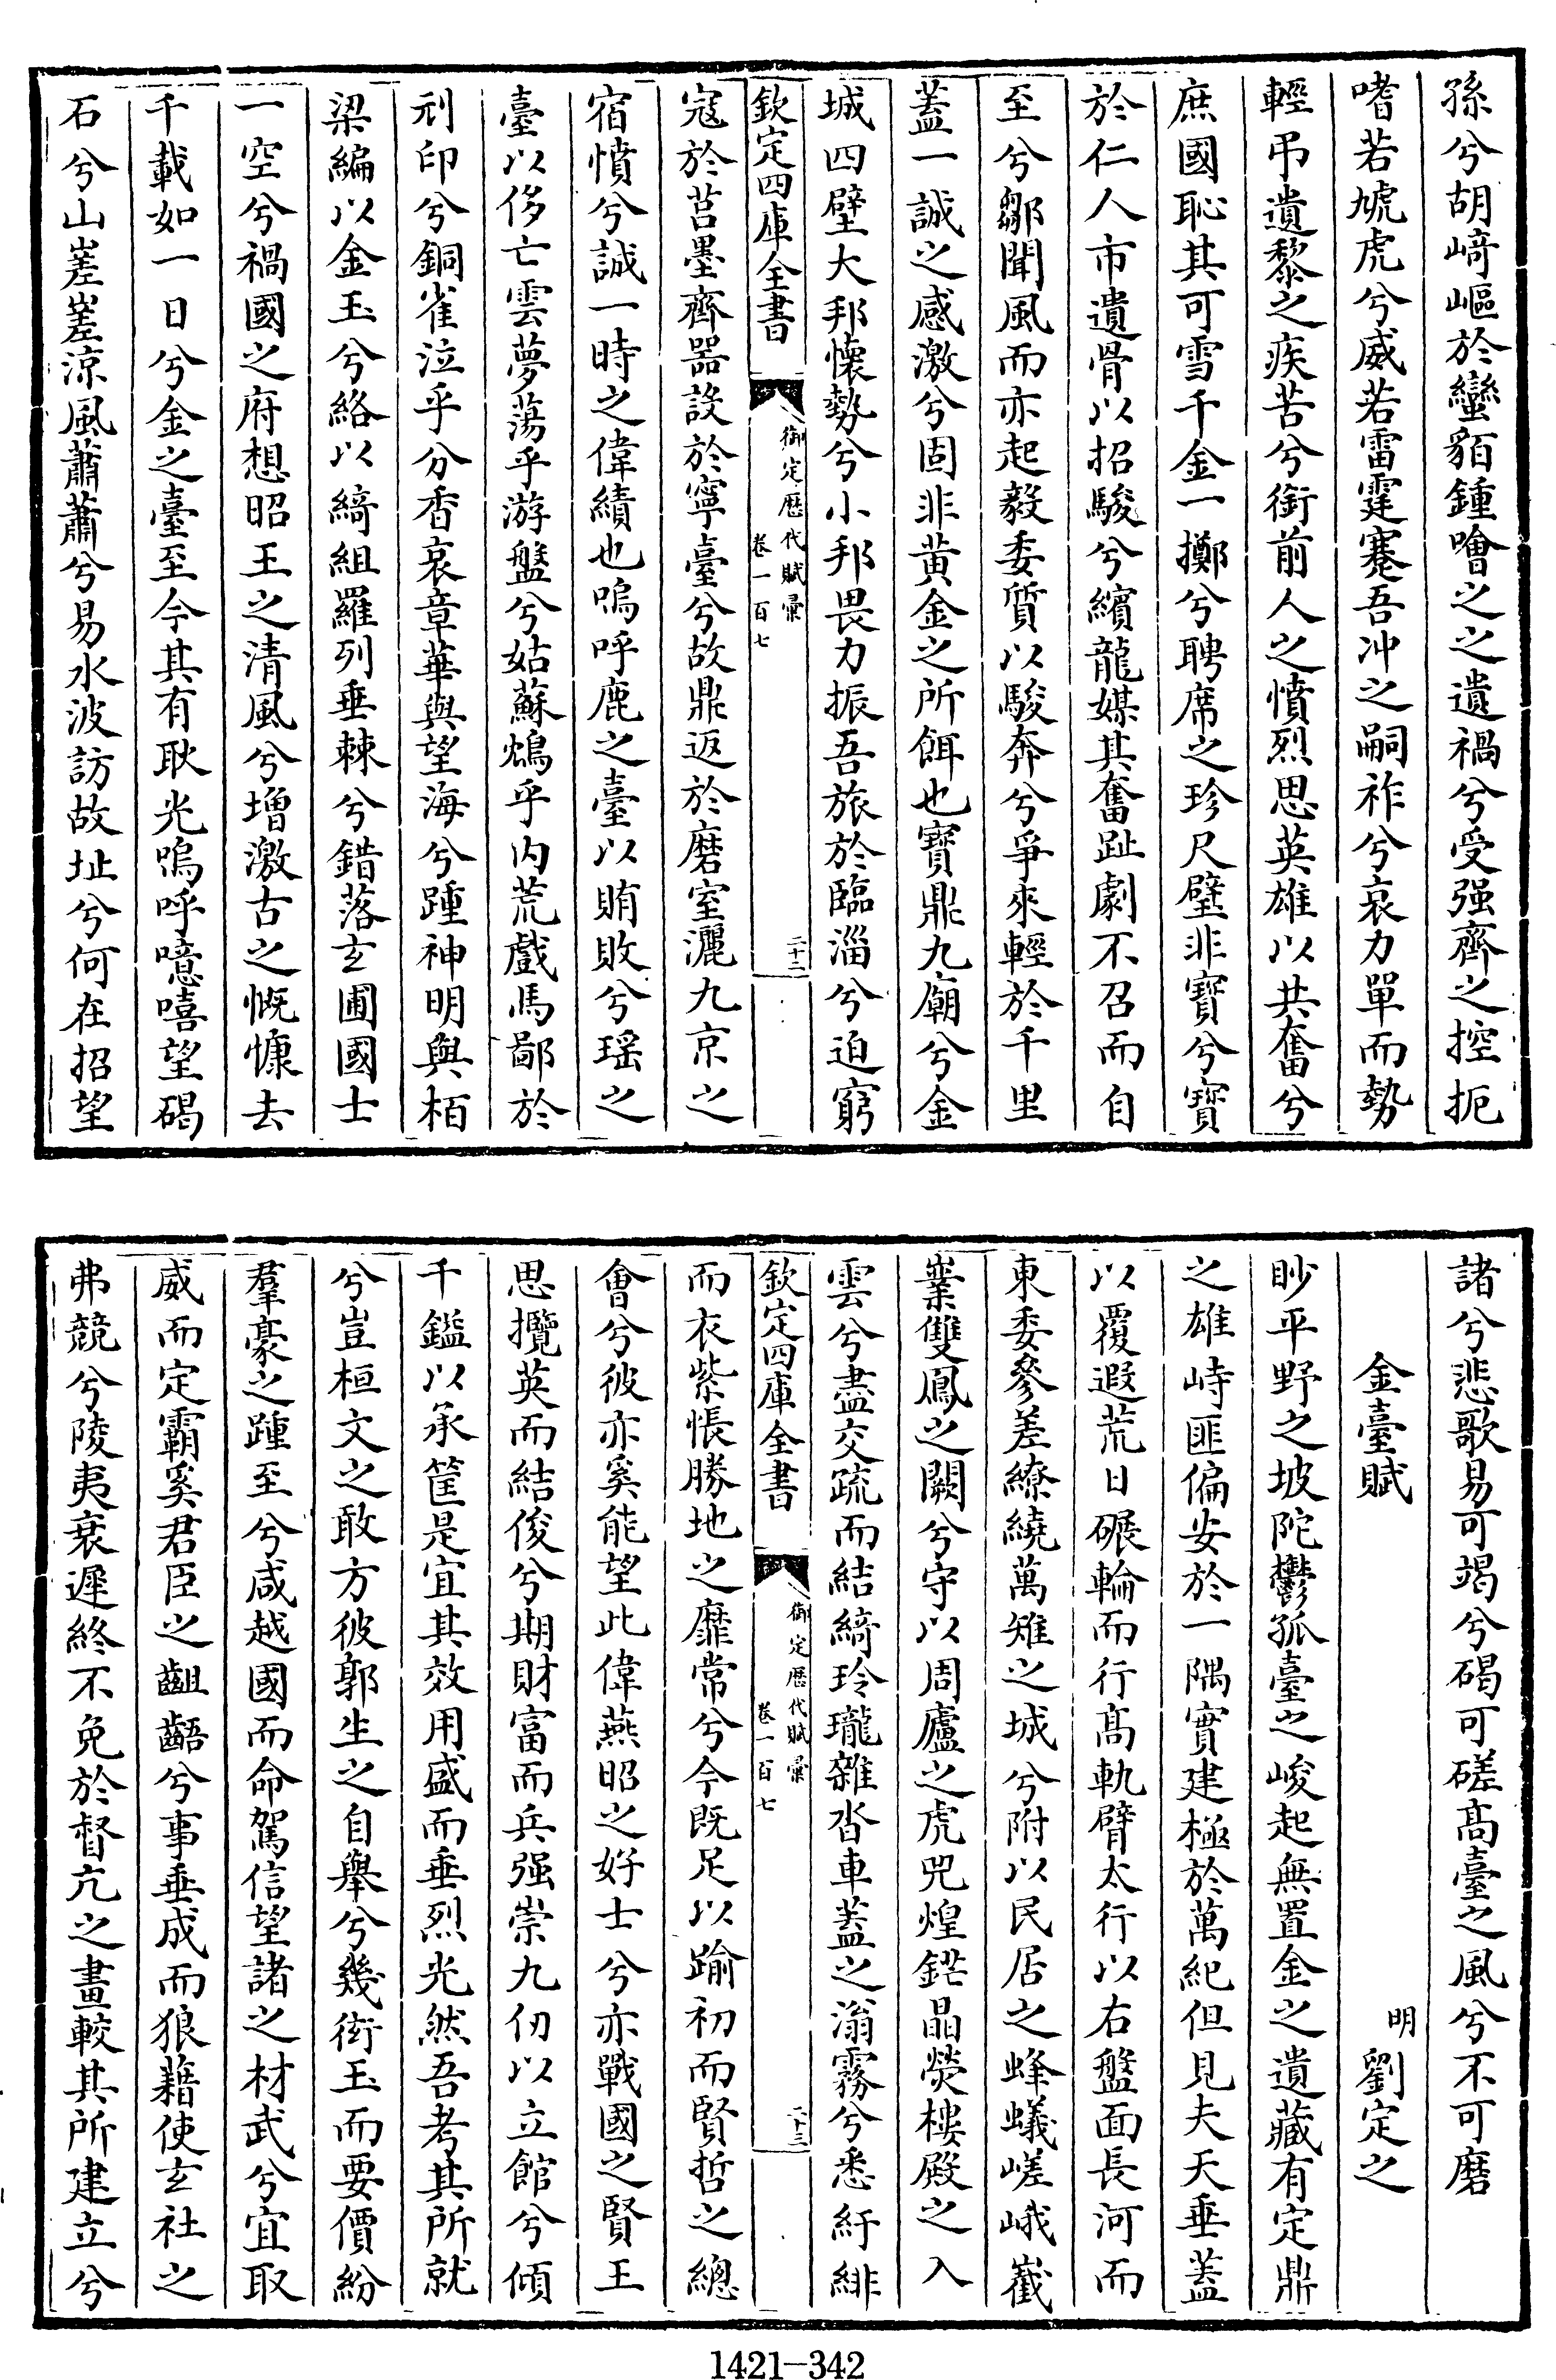 孫兮胡﨑嶇於蠻貊鍾噲之之遺禍兮受强齊之控扼
嗜若虓虎兮威若雷霆蹇吾冲之嗣祚兮哀力單而勢
輕弔遺黎之疾苦兮銜前人之憤烈思英雄以共奮兮
庶國恥其可雪千金一擲兮聘席之珍尺璧非寳兮寳
於仁人市遺骨以招駿兮繽龍媒其奮趾劇不召而自
至兮鄒聞風而亦起毅委質以駿奔兮爭來輕於千里
蓋一誠之感激兮固非黄金之所餌也寳鼎九廟兮金
城四壁大邦懐勢兮小邦畏力振吾旅於臨淄兮迫窮
欽定四庫全書
御定歴代賦彙
卷一百七
二十二
寇於莒墨齊器設於寧臺兮故鼎返於磨室灑九京之
宿憤兮誠一時之偉績也嗚呼鹿之臺以賄敗兮瑶之
臺以侈亡雲夢蕩乎游盤兮姑蘇鴆乎内荒戲馬鄙於
刓印兮銅雀泣乎分香哀章華與望海兮踵神明與栢
梁編以金玉兮絡以綺組羅列垂棘兮錯落玄圃國士
一空兮禍國之府想昭王之清風兮增激古之慨慷去
千載如一日兮金之臺至今其有耿光嗚呼噫嘻望碣
石兮山嵳嵳涼風蕭蕭兮易水波訪故址兮何在招望
諸兮悲歌易可竭兮碣可磋髙臺之風兮不可磨
金臺賦
明 劉定之
眇平野之坡陀鬱孤臺之峻起無置金之遺藏有定鼎
之雄峙匪偏安於一隅實建極於萬紀但見夫天垂蓋
以覆遐荒日碾輪而行髙軌臂太行以右盤面長河而
東委參差繚繞萬雉之城兮附以民居之蜂蟻嵯峨嶻
嶪雙鳳之闕兮守以周廬之虎兕煌鋩晶熒樓殿之入
雲兮盡交疏而結綺玲瓏雜沓車蓋之滃霧兮悉紆緋
欽定四庫全書
御定歴代賦彙
卷一百七
二十三
而衣紫悵勝地之靡常兮今既足以踰初而賢哲之總
會兮彼亦奚能望此偉燕昭之好士兮亦戰國之賢王
思攬英而結俊兮期財富而兵强崇九仞以立館兮傾
千鎰以承筐是宜其效用盛而垂烈光然吾考其所就
兮豈桓文之敢方彼郭生之自舉兮幾衒玉而要價紛
羣豪之踵至兮咸越國而命駕信望諸之材武兮宜取
威而定霸奚君臣之齟齬兮事垂成而狼藉使玄社之
弗競兮陵夷衰遲終不免於督亢之畫較其所建立兮
1421-342